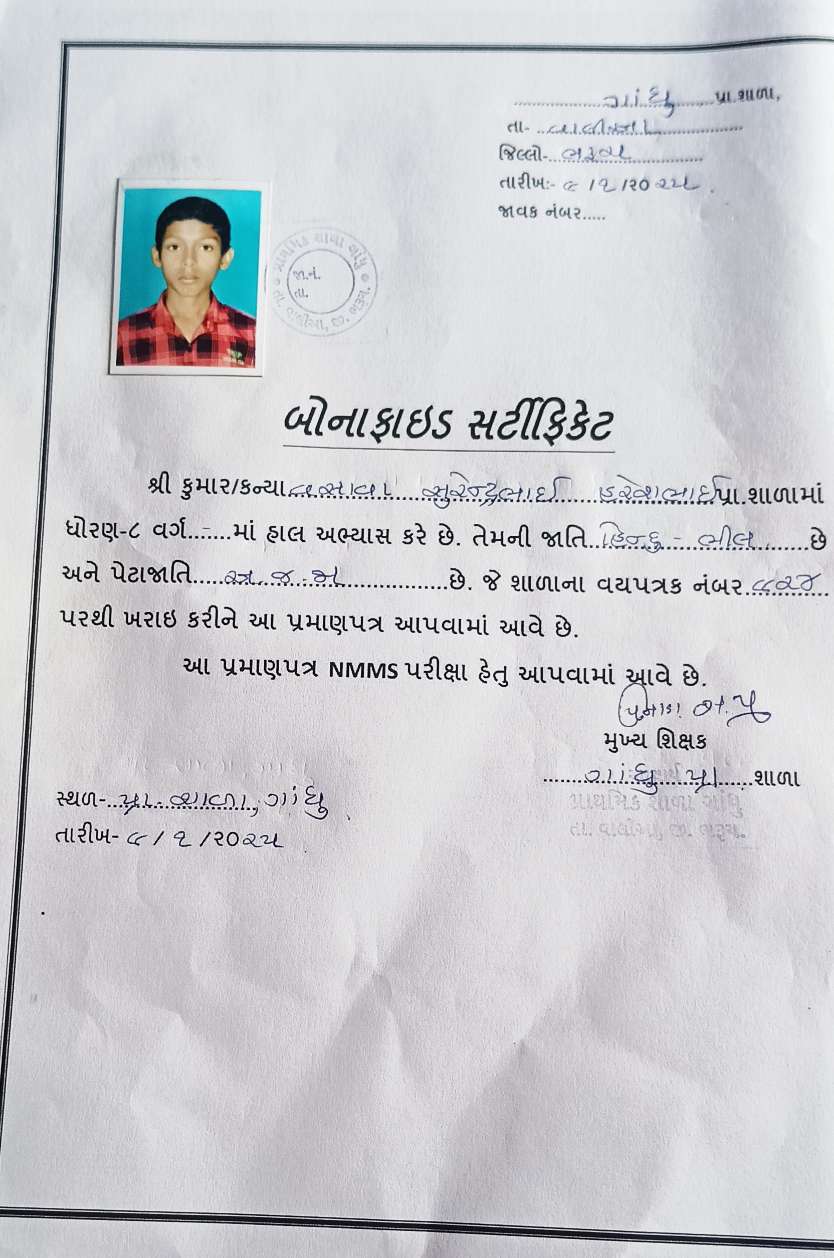 ગાંધુ પ્રા.શાળા,
તા- વાલીયા
જિલ્લો- ભરૂચ
તારીખ:- ૯/૧/૨૦૨૫.
જાવક નંબર.....
પ્રાથમિક શાળા ગાંધુ
જા.નં.
તા.
તા. વાલીયા, જી. ભરૂચ.
બોનાફાઇડ સર્ટીફિકેટ
શ્રી કુમાર/કન્યા વસાવા સુરેન્દ્રભાઈ પ્રા.શાળામાં
ધોરણ-૮ વર્ગ...-...માં હાલ અભ્યાસ કરે છે. તેમની જાતિ..હિન્દુ - ભીલ......છે
અને પેટાજાતિ....અ.જ.જા.................છે. જે શાળાના વયપત્રક નંબર
પરથી ખરાઇ કરીને આ પ્રમાણપત્ર આપવામાં આવે છે.
આ પ્રમાણપત્ર NMMS પરીક્ષા હેતુ આપવામાં આવે છે.
મુખ્ય શિક્ષક
ગાંધુ પ્રા. શાળા
પ્રાથમિક શાળા ગાંધુ
તા. વાલીયા, જી. ભરૂચ.
સ્થળ-..પ્રા. શાળા, ગાંધુ
તારીખ- ૯/૧/૨૦૨૫